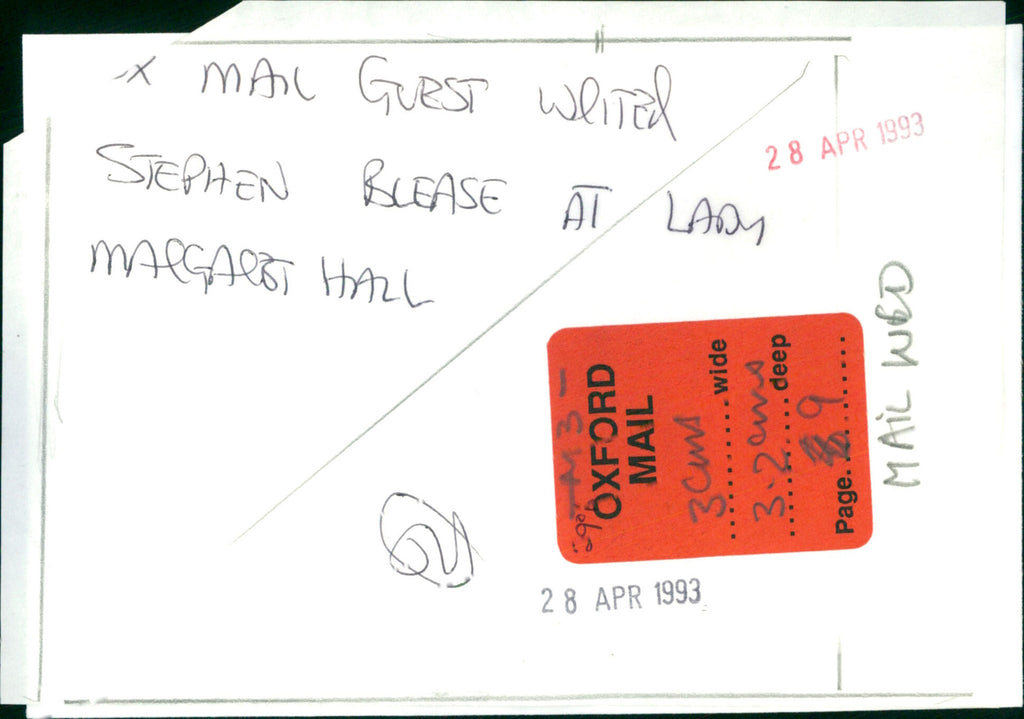 X MAIL GUEST WRITER
STEPHEN BLEASE AT LADY
MARGARET HALL
28 APR 1993
MAIL WED
OXFORD
MAIL
3 cms wide
3.2 cms deep
Page. 9
28 APR 1993